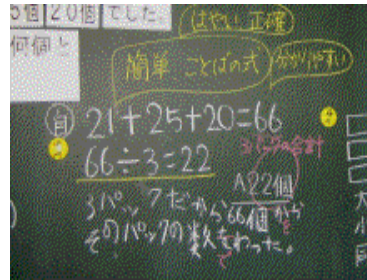 5個 20個 でした。
何個と
はやい 正確
簡単 ことばの式
分かりやすい
自 21+25+20=66
66÷3=22
A 22個
3パックだから66個から
そのパックの数をわった。